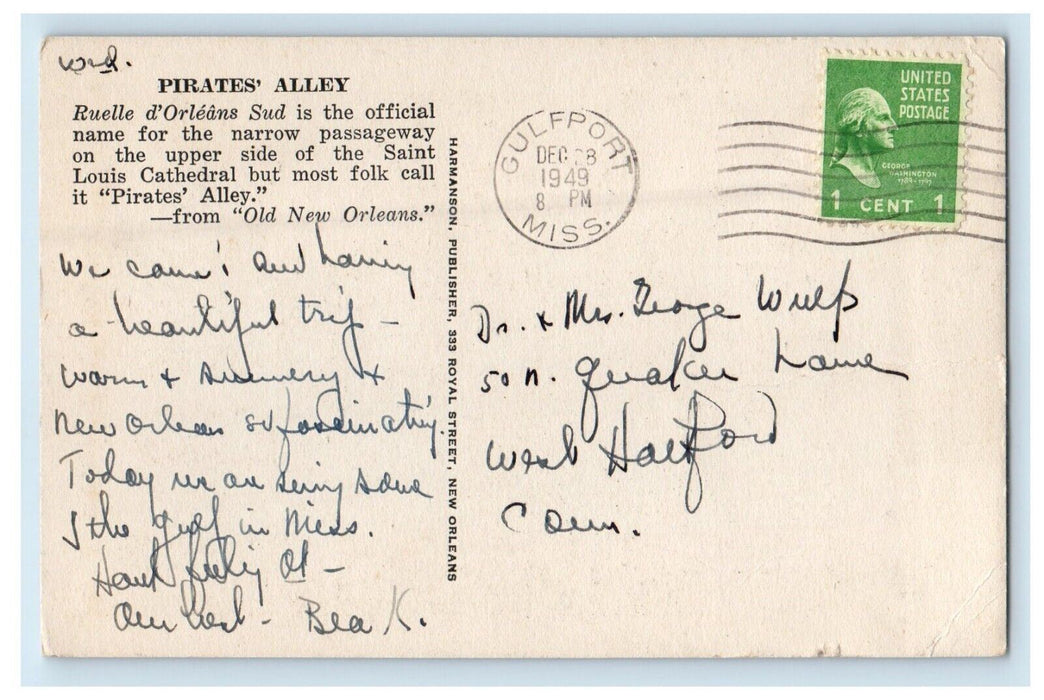 Wed.
PIRATES' ALLEY
Ruelle d'Orléâns Sud is the official
name for the narrow passageway
on the upper side of the Saint
Louis Cathedral but most folk call
it "Pirates' Alley."
—from "Old New Orleans."
We and having
a beautiful trip –
warm + summery +
New Orleans so fascinating.
Today we are seeing some
of the gulf in Miss.
Our best – Bea K.
HARMANSON, PUBLISHER, 333 ROYAL STREET, NEW ORLEANS
GULFPORT
DEC 28
1949
8 PM
MISS.
UNITED
STATES
POSTAGE
GEORGE
WASHINGTON
1789-1797
1 CENT 1
Dr. + Mrs. George Wulp
50 N. Quaker Lane
West Hartford
Conn.